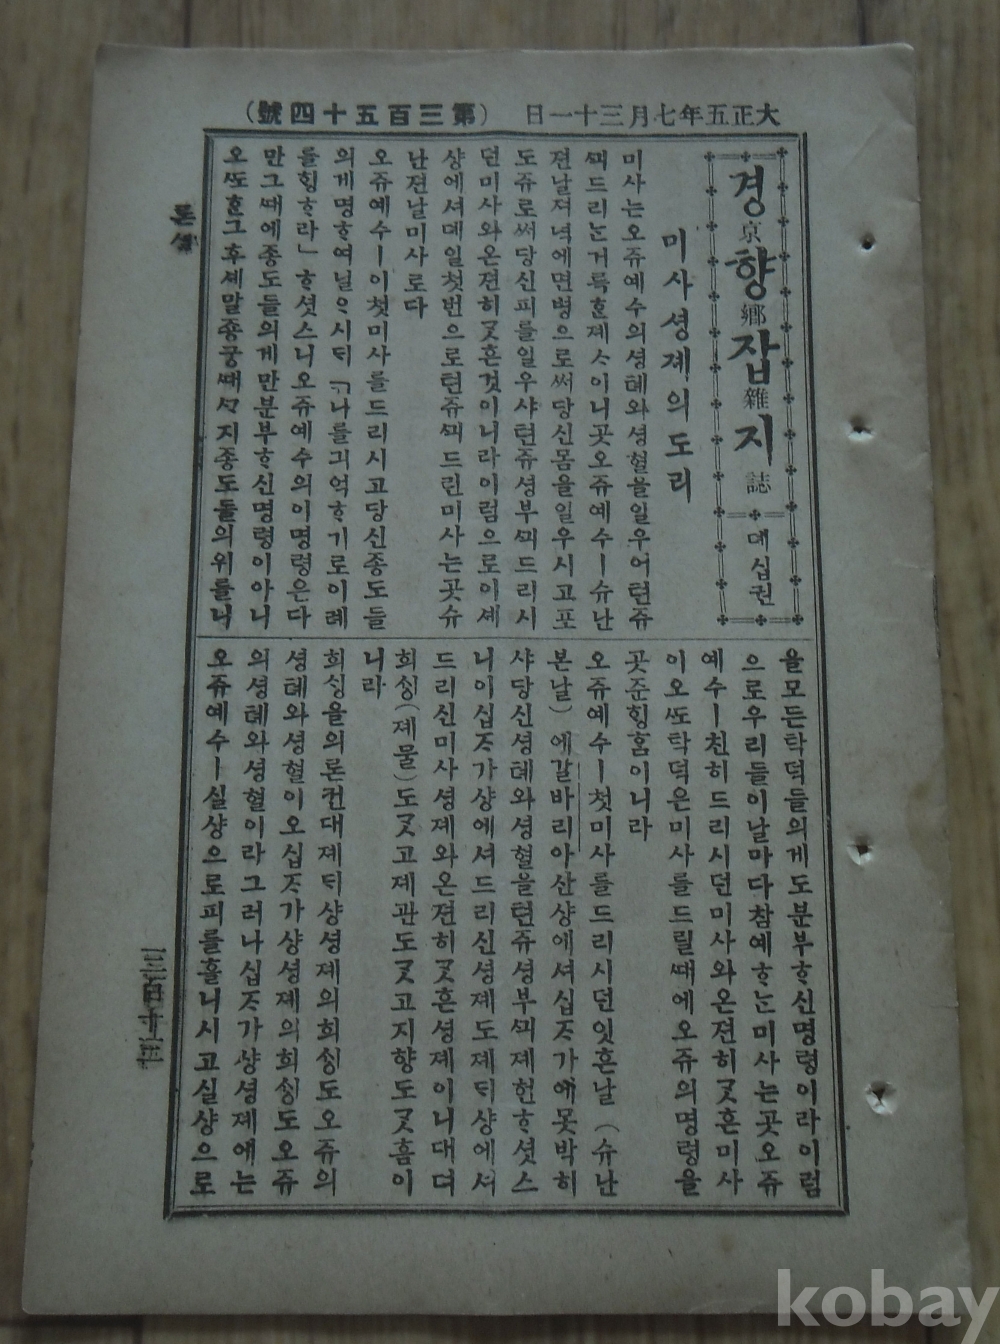 大正五年七月三十一日 (第三百五十四號)
경京향鄕잡雜지誌 뎨십권
미사셩졔의도리
미사는오쥬예수의셩톄와셩혈을일우어텬쥬
ᄭᅴ드리ᄂᆞᆫ거륵ᄒᆞᆫ졔ᄉᆞ이니곳오쥬예수ㅣ슈난
젼날져녁에면병으로써당신몸을일우시고포
도쥬로써당신피를일우샤텬쥬셩부ᄭᅴ드리시
던미사와온젼히ᄀᆞᆺ흔것이니라이럼으로이셰
샹에셔뎨일첫번으로텬쥬ᄭᅴ드린미사는곳슈
난젼날미사로다
오쥬예수ㅣ이첫미사를드리시고당신종도들
의게명ᄒᆞ여닐ᄋᆞ시ᄃᆡ「나를긔억ᄒᆞ기로이례
를ᄒᆡᆼᄒᆞ라」ᄒᆞ셧스니오쥬예수의이명령은다
만그때에종도들의게만분부ᄒᆞ신명령이아니
오ᄯᅩᄒᆞᆫ그후셰말죵궁때ᄭᆞ지종도들의위를니
을모든탁덕들의게도분부ᄒᆞ신명령이라이럼
으로우리들이날마다참예ᄒᆞᄂᆞᆫ미사는곳오쥬
예수ㅣ친히드리시던미사와온젼히ᄀᆞᆺ흔미사
이오ᄯᅩ탁덕은미사를드릴때에오쥬의명령을
곳준ᄒᆡᆼ홈이니라
오쥬예수ㅣ첫미사를드리시던잇흔날(슈난
본날)에갈바리아산샹에셔십ᄌᆞ가에못박히
샤당신셩톄와셩혈을텬쥬셩부ᄭᅴ졔헌ᄒᆞ셧스
니이십ᄌᆞ가샹에셔드리신셩졔도졔ᄃᆡ샹에셔
드리신미사셩졔와온젼히ᄀᆞᆺ흔셩졔이니대뎌
희ᄉᆡᆼ(졔물)도ᄀᆞᆺ고졔관도ᄀᆞᆺ고지향도ᄀᆞᆺ홈이
니라
희ᄉᆡᆼ을의론컨대졔ᄃᆡ샹셩졔의희ᄉᆡᆼ도오쥬의
셩톄와셩혈이오십ᄌᆞ가샹셩졔의희ᄉᆡᆼ도오쥬
의셩톄와셩혈이라그러나십ᄌᆞ가샹셩졔에는
오쥬예수ㅣ실샹으로피를흘니시고실샹으로
론셜
kobay